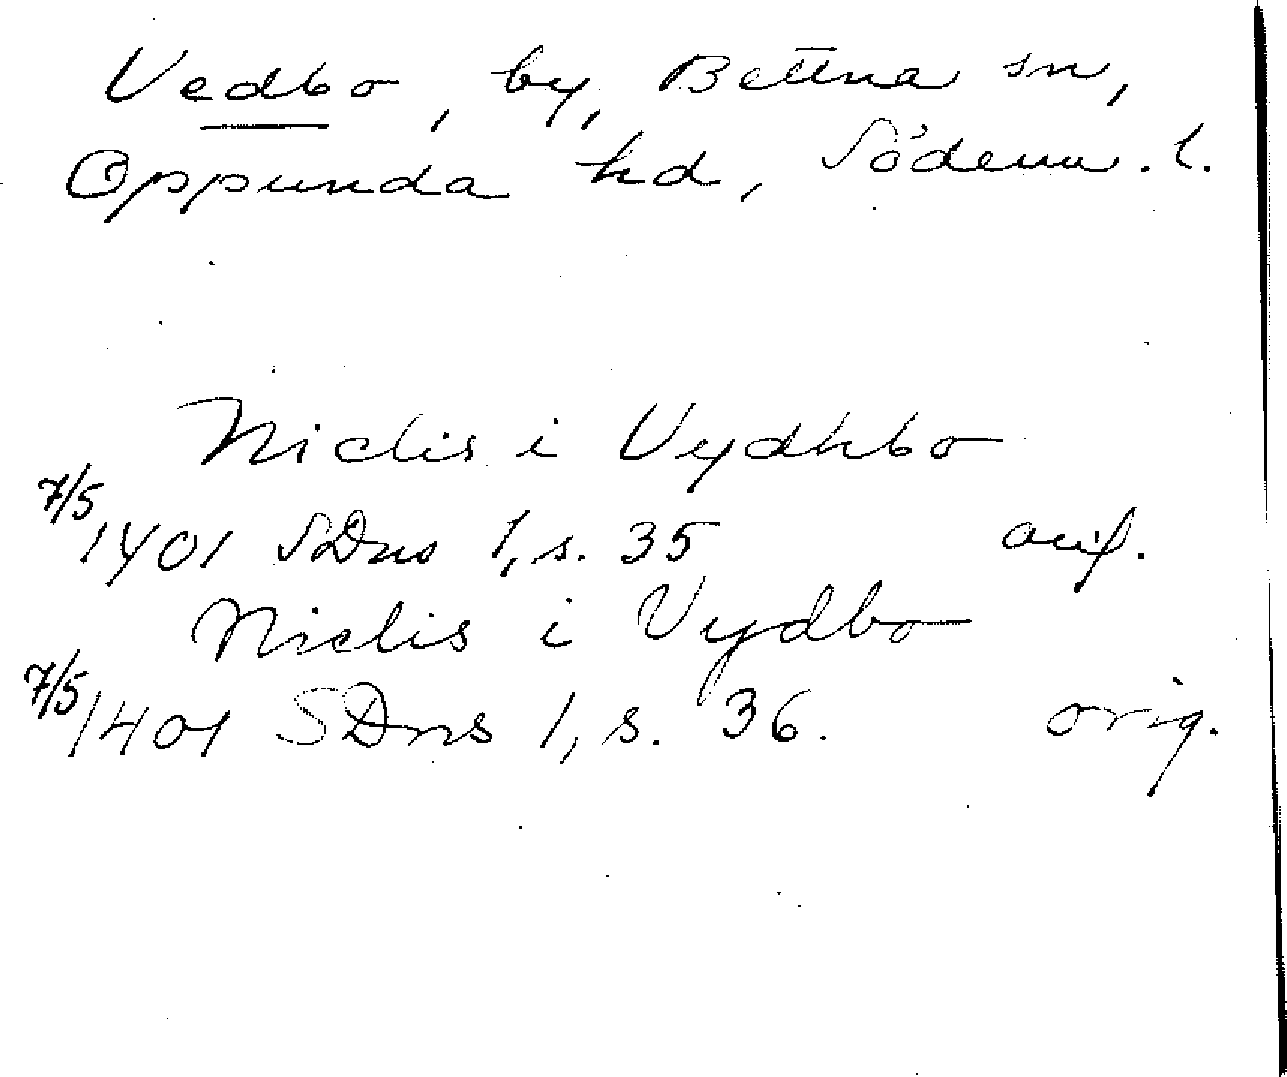 Vedbo, by, Bettna sn,
Oppunda hd, Söderm. l.
Niclis i Vydhbo
7/5 1401 SDns 1, s. 35 orig.
Niclis i Vydbo
7/5 1401 SDns 1, s. 36. orig.